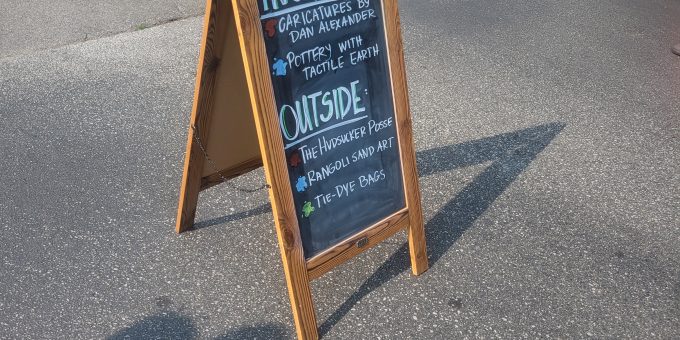 CARICATURES BY
DAN ALEXANDER
POTTERY WITH
TACTILE EARTH
OUTSIDE:
THE HUDSUCKER POSSE
RANGOLI SAND ART
TIE-DYE BAGS